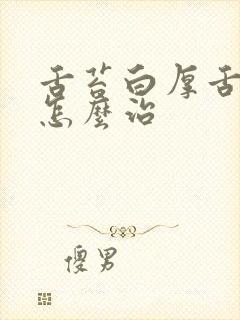 舌苔白厚舌
怎麼治
傻男